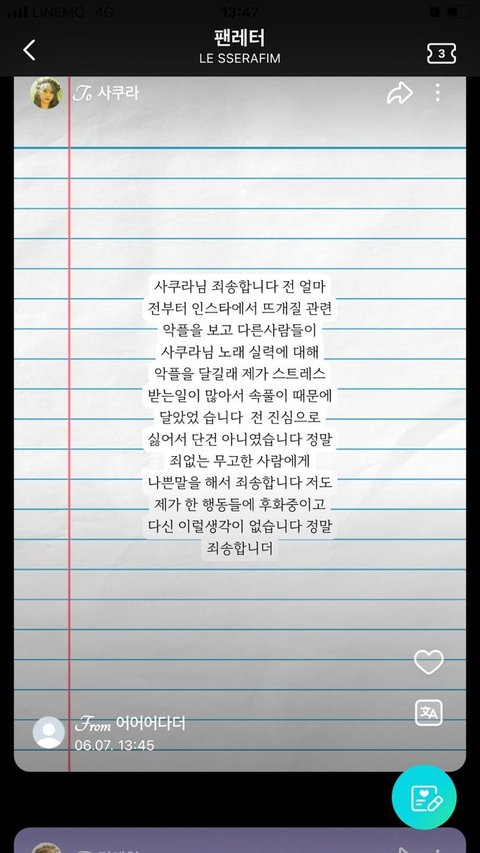 LINEMO 4G 13:47
팬레터
LE SSERAFIM
3
To 사쿠라
사쿠라님 죄송합니다 전 얼마
전부터 인스타에서 뜨개질 관련
악플을 보고 다른사람들이
사쿠라님 노래 실력에 대해
악플을 달길래 제가 스트레스
받는일이 많아서 속풀이 때문에
달았었 습니다 전 진심으로
싫어서 단건 아니였습니다 정말
죄없는 무고한 사람에게
나쁜말을 해서 죄송합니다 저도
제가 한 행동들에 후화중이고
다신 이럴생각이 없습니다 정말
죄송합니더
From 어어어다더
06.07. 13:45